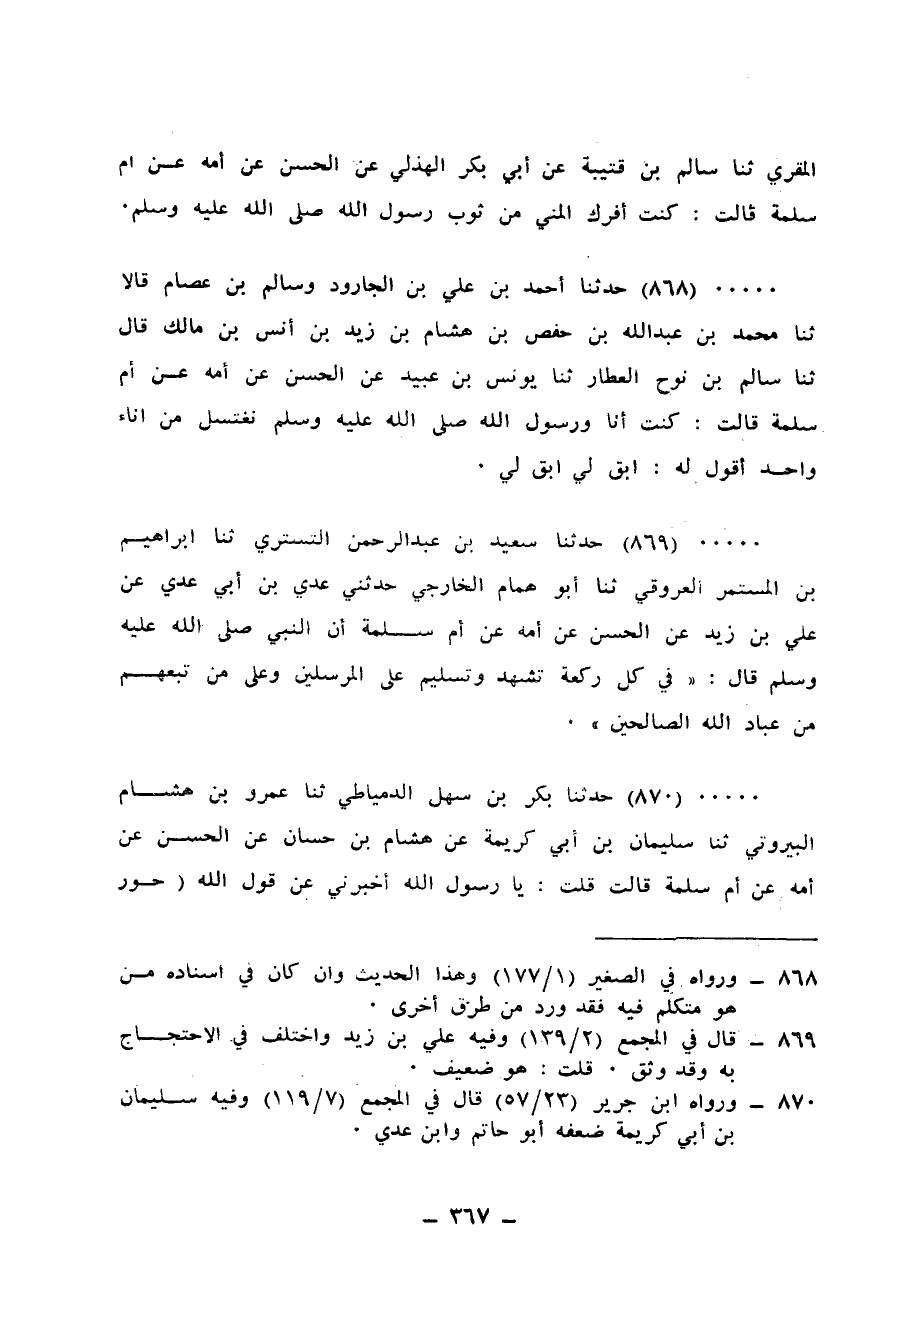 المقري ثنا سالم بن قتيبة عن أبي بكر الهذلي عن الحسن عن أمه عـن ام
سلمة قالت : كنت أفرك المني من ثوب رسول الله صلى الله عليه وسلم٠
٠٠٠٠٠ (٨٦٨) حدثنا أحمد بن علي بن الجارود وسالم بن عصام قالا
ثنا محمد بن عبدالله بن حفص بن هشام بن زيد بن أنس بن مالك قال
ثنا سالم بن نوح العطار ثنا يونس بن عبيد عن الحسن عن أمه عـن أم
سلمة قالت : كنت أنا ورسول الله صلى الله عليه وسلم نغتسل من اناء
واحـد أقول له : ابق لي ابق لي ٠
٠٠٠٠٠ (٨٦٩) حدثنا سعيد بن عبدالرحمن التستري ثنا ابراهيـم
بن المستمر العروقي ثنا أبو همام الخارجي حدثني عدي بن أبي عدي عن
علي بن زيد عن الحسن عن أمه عن أم ســلمة أن النبي صلى الله عليه
وسلم قال : « في كل ركعة تشهد وتسليم على المرسلين وعلى من تبعهـم
من عباد الله الصالحين » ٠
٠٠٠٠٠ (٨٧٠) حدثنا بكر بن سهل الدمياطي ثنا عمرو بن هشـام
البيروتي ثنا سليمان بن أبي كريمة عن هشام بن حسان عن الحسـن عن
أمه عن أم سلمة قالت قلت : يا رسول الله أخبرني عن قول الله ( حـور
٨٦٨ ـ ورواه في الصغير (١٧٧/١) وهذا الحديث وان كان في اسناده مـن
هو متكلم فيه فقد ورد من طرق أخرى ٠
٨٦٩ ـ قال في المجمع (١٣٩/٢) وفيه علي بن زيد واختلف في الاحتجـاج
به وقد وثق ٠ قلت : هو ضعيف ٠
٨٧٠ ـ ورواه ابن جرير (٥٧/٢٣) قال في المجمع (١١٩/٧) وفيه سـليمان
بن أبي كريمة ضعفه أبو حاتم وابن عدي ٠
ـ ٣٦٧ ـ